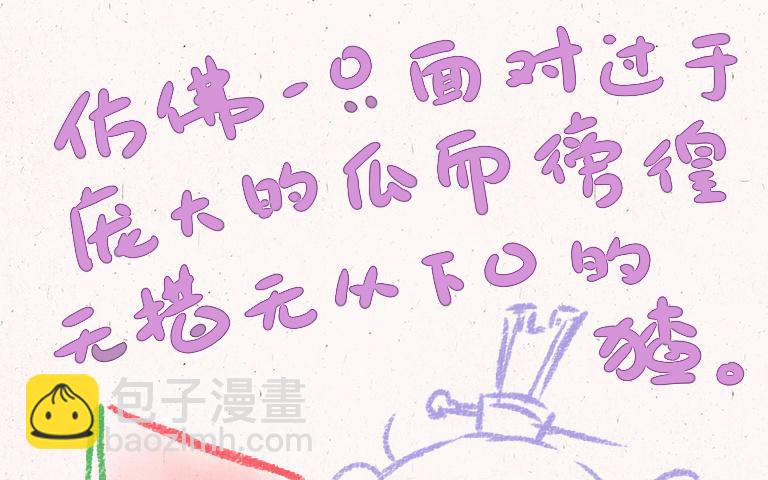 仿佛一只面对过于
庞大的瓜而徬徨
无措无从下口的
猹。
包子漫畫
baozimh.com